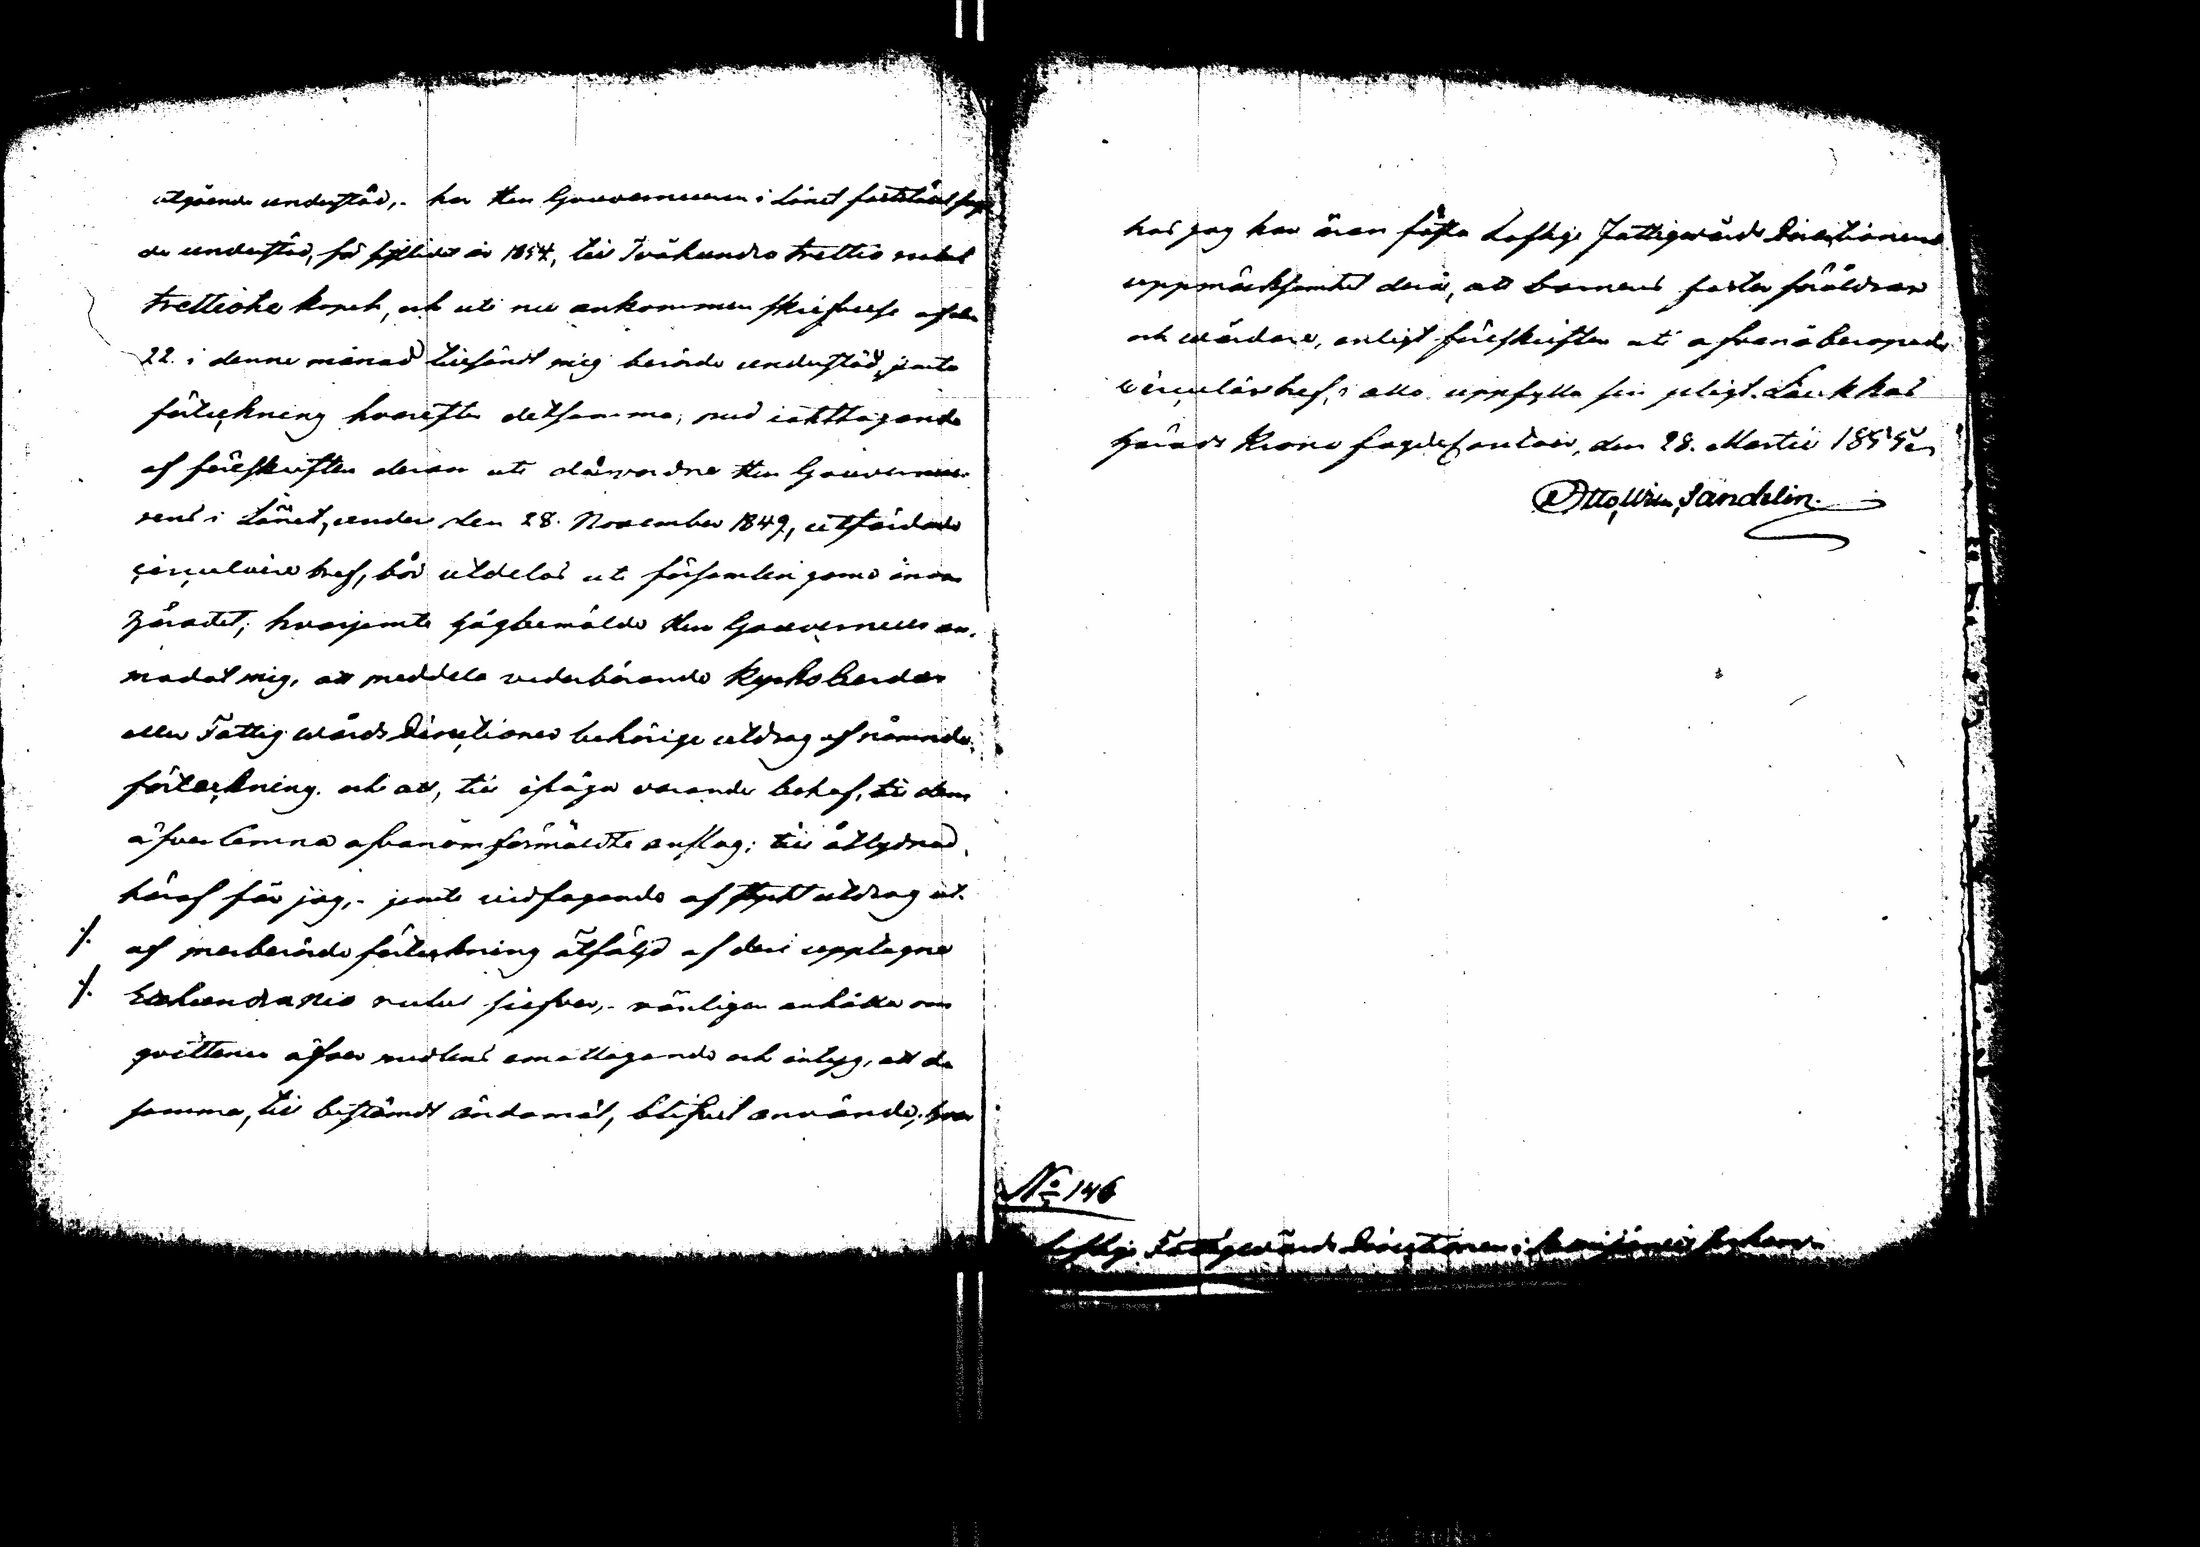 utgående understöd,- har Herr Gouverneuren i Länet fastställt sag-
de understöd, för sistlidet år 1854, till Tvåhundra trettio rubel
trettiohe kopek, och uti nu ankommen skrifvelse af den
22. i denne månad tillsändt mig berörde understöd, jemte
förteckning hvarefter detsamma, med iakttagande
af föreskriften derom uti dåvarande Herr Gouverneu-
rens i Länet, under den 28. November 1849, utfärdade
circulaire bref, bör utdelas uti församlingarne inom
Häradet; hvarjemte högbemälde Herr Gouverneur an-
modat mig, att meddela vederbörande Kyrkoherdar
eller Fattigvårds Directioner behörige utdrag af nämnde
förteckning och att, till ifråga varande behof, till dem
öfverlemna ofvanomförmäldte anslag; till åtlydnad
häraf får jag,- jemte vidfogande af utdrag ut
./. af merberörde förteckning åtföljd af deri upptagne
./. rubel silfver,- vänligen anhålla om
qvittence öfver medlens emottagande och intyg, att de-
samma, till bestämdt ändamål, blifvit använde; hvar
hos jag har äran fästa Loflige Fattigvårds Directionens
uppmärksamhet derå, att barnens foster föräldrar
och vårdare, enligt föreskriften uti ofvanåberopade
circulär bref, i allo uppfylla sin pligt.
Härads Krono fogdeContoir, den 28. Martii 1855.
Otto Wilh. Sandelin.
No 146
Loflige Fattigvårds Directionen i